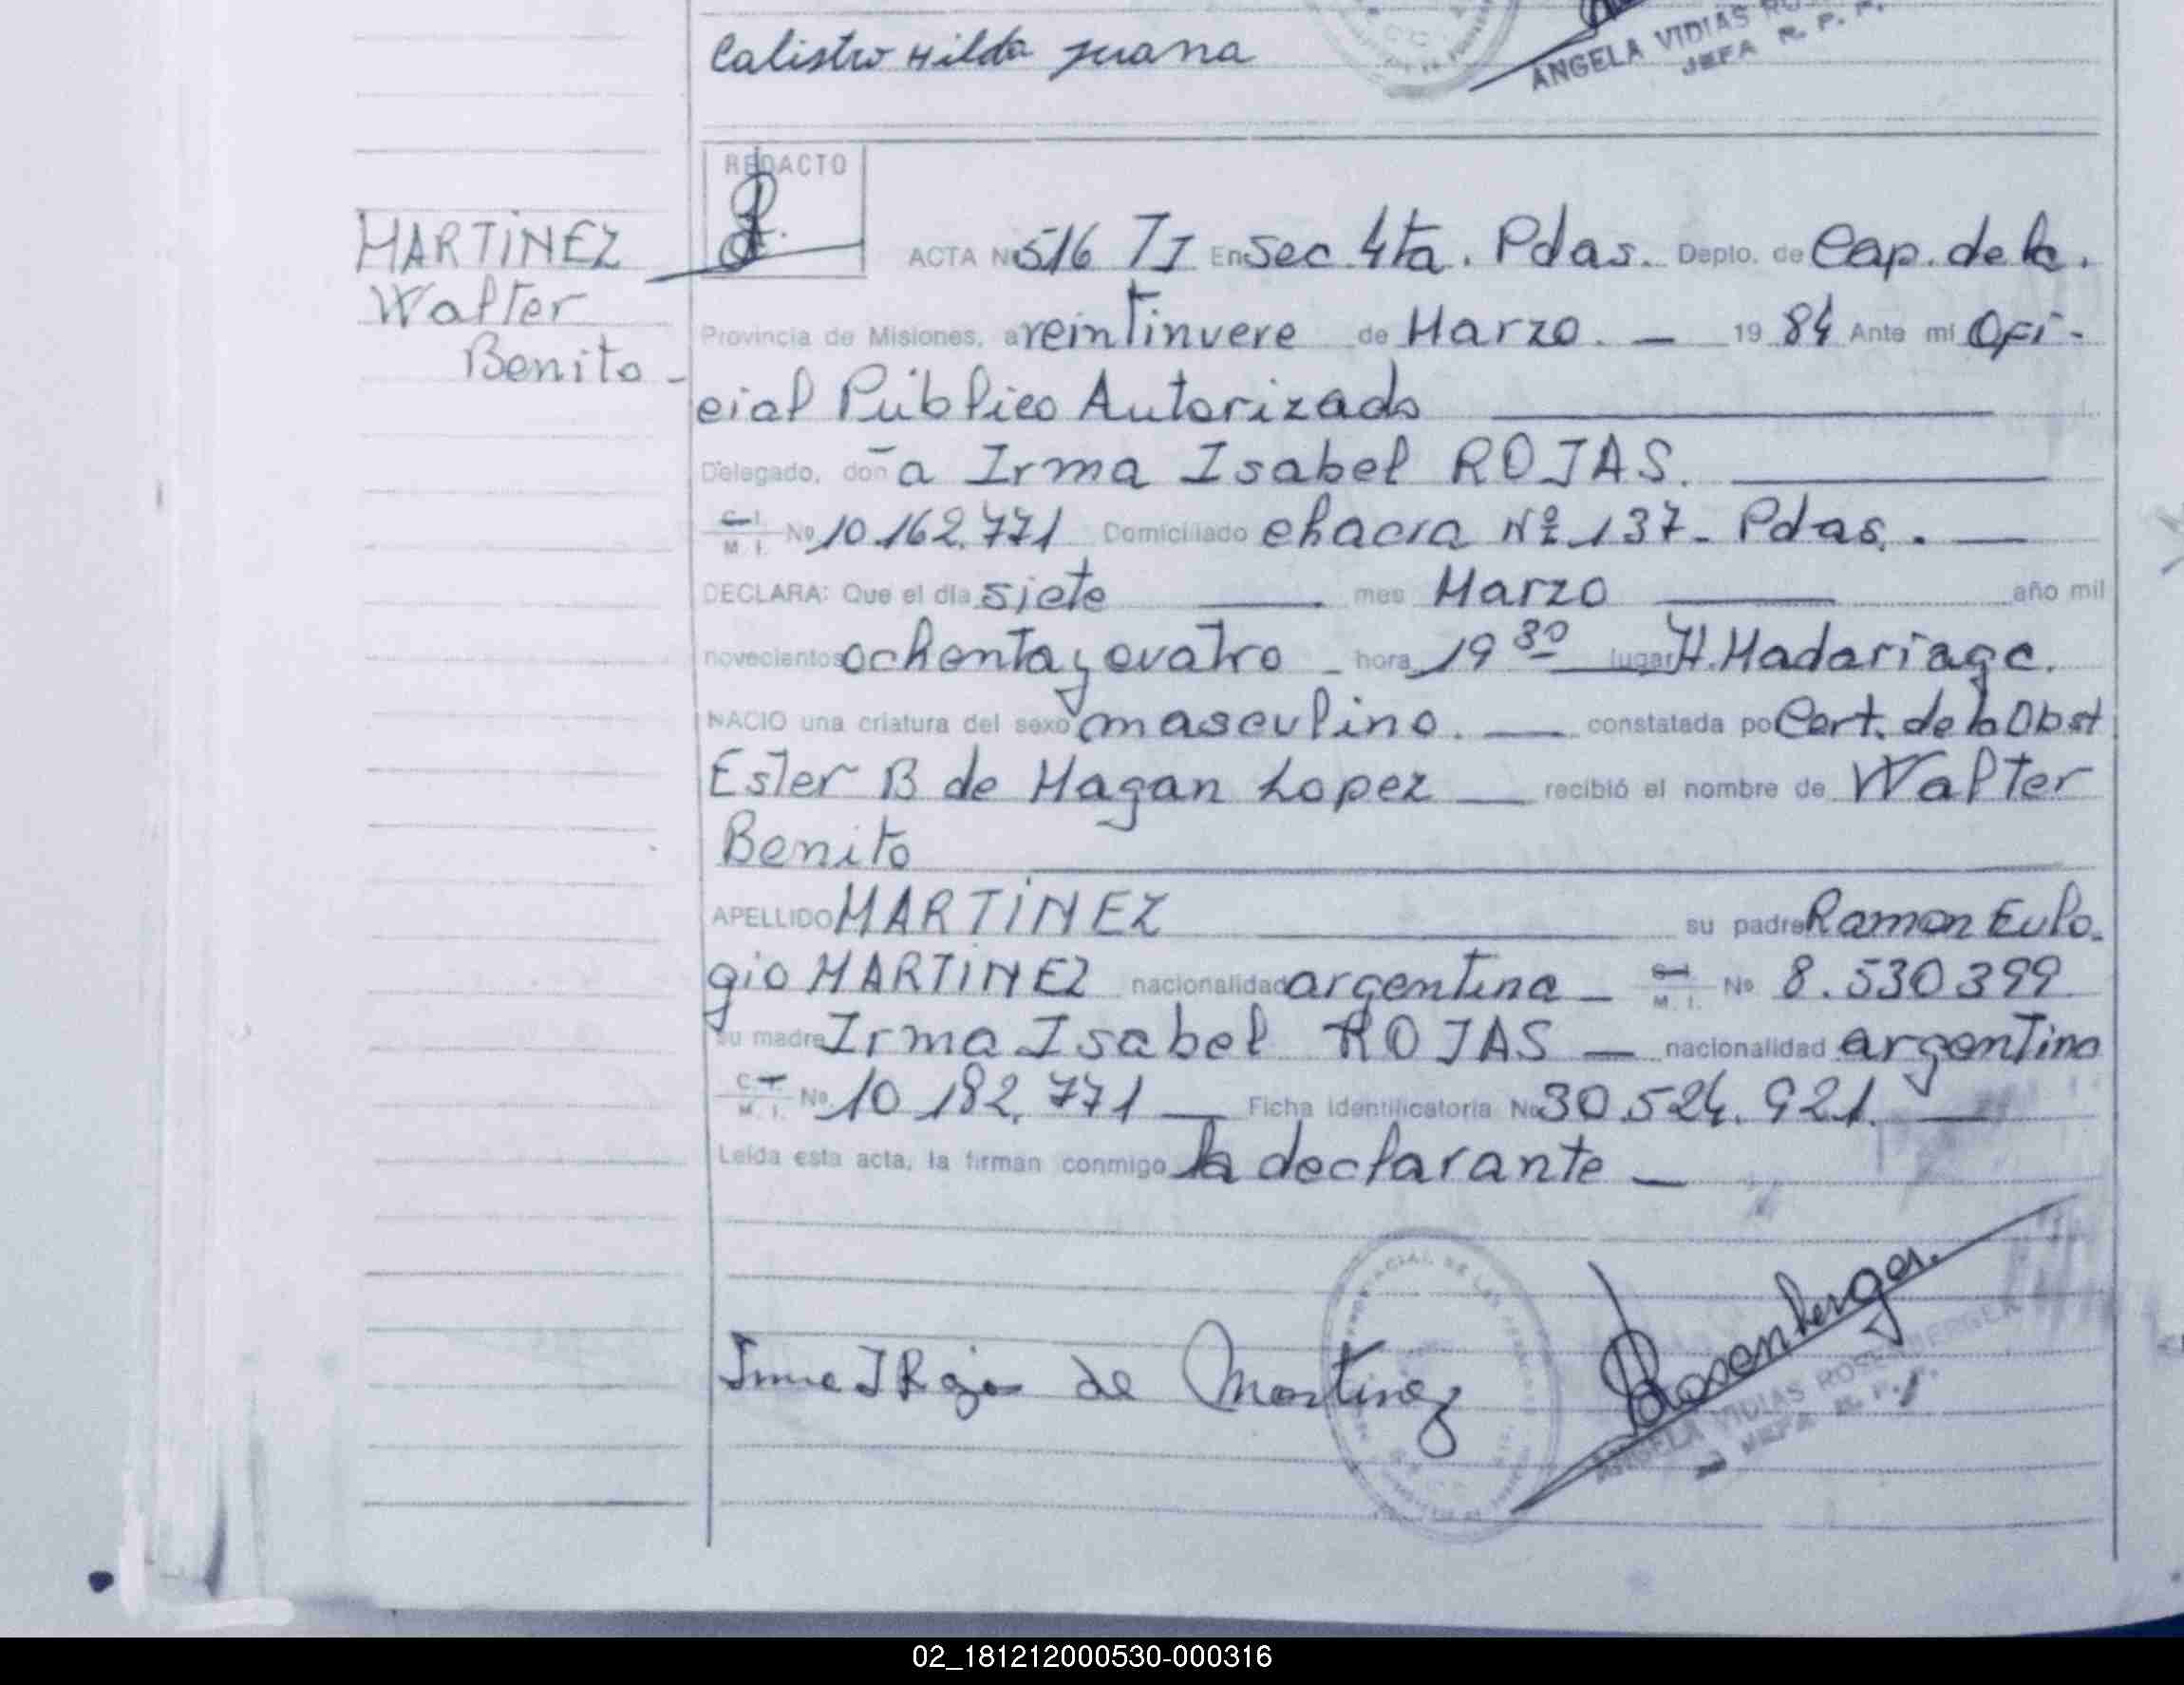 Calistro Hilda Juana
ANGELA VIDIAS
JEFA R. P. P.
REDACTO
MARTINEZ
Walter
Benito -
ACTA Nº 516 TI En Sec 4ta. Pdas. Depto. de Cap. de la.
Provincia de Misiones, a veintinueve de Marzo. — 19 84 Ante mí Ofi-
cial Público Autorizado
Delegado, don̄a Irma Isabel ROJAS.
C. I. M. I. Nº 10.162.771 Domiciliado chacra Nº 137 - Pdas. . —
DECLARA: Que el día siete — mes Marzo — año mil
novecientos ochenta y cuatro - hora 19 30 lugar H. Madariaga.
NACIO una criatura del sexo masculino. — constatada po Cert. de la Obst
Ester B de Magan Lopez — recibió el nombre de Walter
Benito
APELLIDO MARTINEZ su padre Ramon Eulo-
gio MARTINEZ nacionalidad argentina - C. I. M. I. Nº 8.530399
su madre Irma Isabel ROJAS — nacionalidad argentina
C. I. M. I. Nº 10.182.771 — Ficha Identificatoria Nº 30.524.921. —
Leída esta acta, la firman conmigo la declarante —
Irma I Rojas de Martinez
Rosenberger.
ANGELA VIDIAS ROSENBERGER
JEFA R. P. P.
02_181212000530-000316